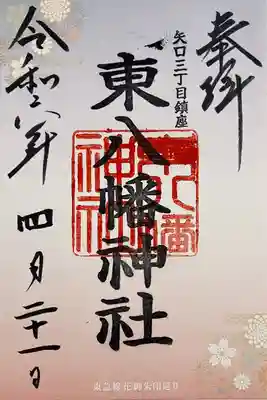 奉拝
矢口三丁目鎮座
東八幡神社
令和六年 四月二十一日